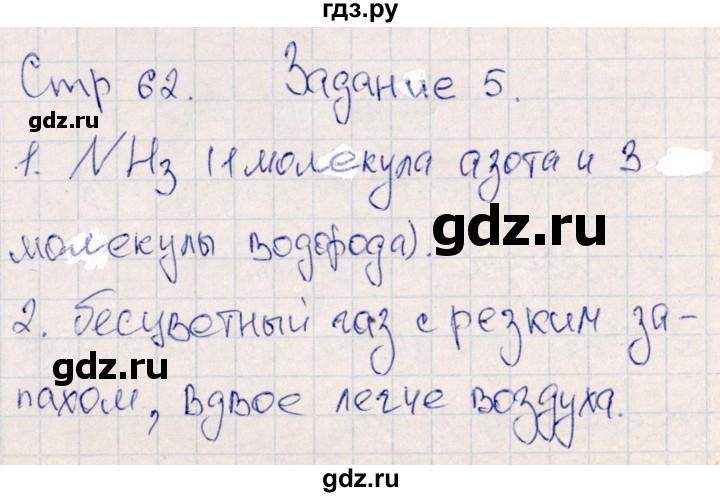 гдз.ру
Стр 62. Задание 5.
gdz.ru
1. NH3 (1 молекула азота и 3
gdz.ru
молекулы водорода).
2. бесцветный газ с резким за-
gdz.ru
пахом, вдвое легче воздуха.
gdz.ru